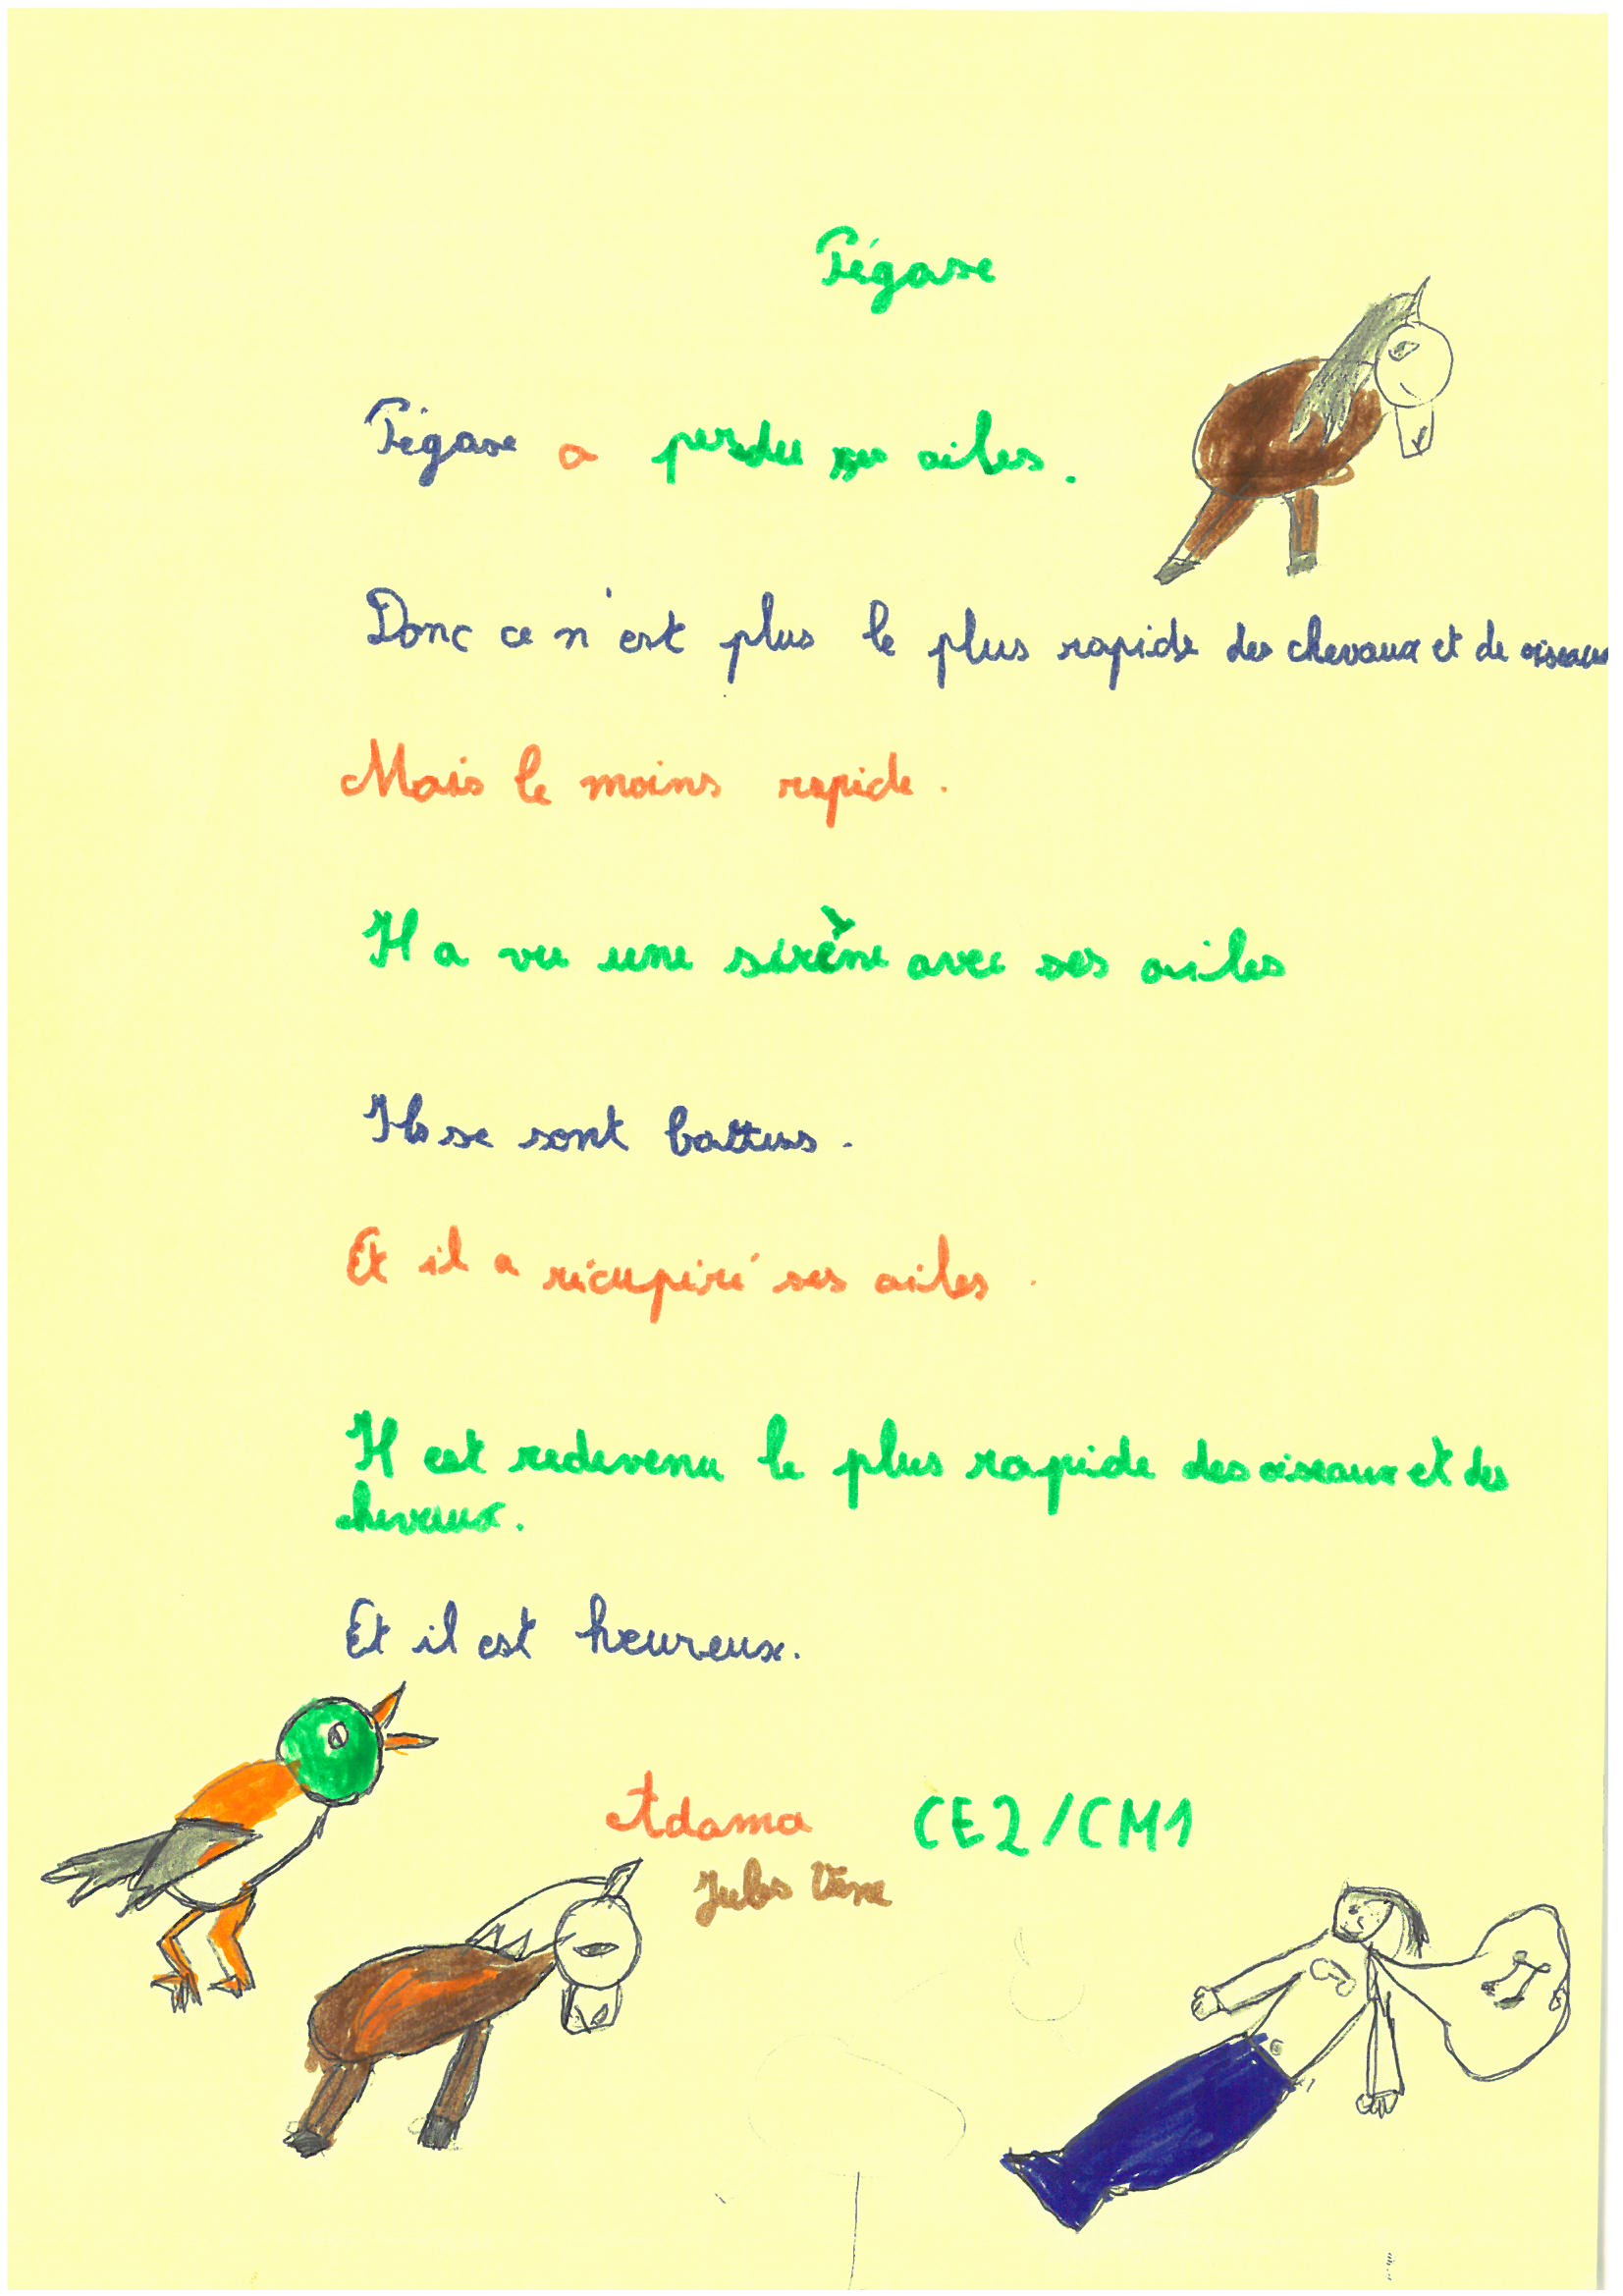 Pégase
Pégase a perdu ses ailes.
Donc ce n'est plus le plus rapide des chevaux et de oiseaux
Mais le moins rapide.
Il a vu une sirène avec ses ailes
Ils se sont battus.
Et il a récupéré ses ailes.
Il est redevenu le plus rapide des oiseaux et des
chevaux.
Et il est heureux.
Adama CE2/CM1
Jules Verne